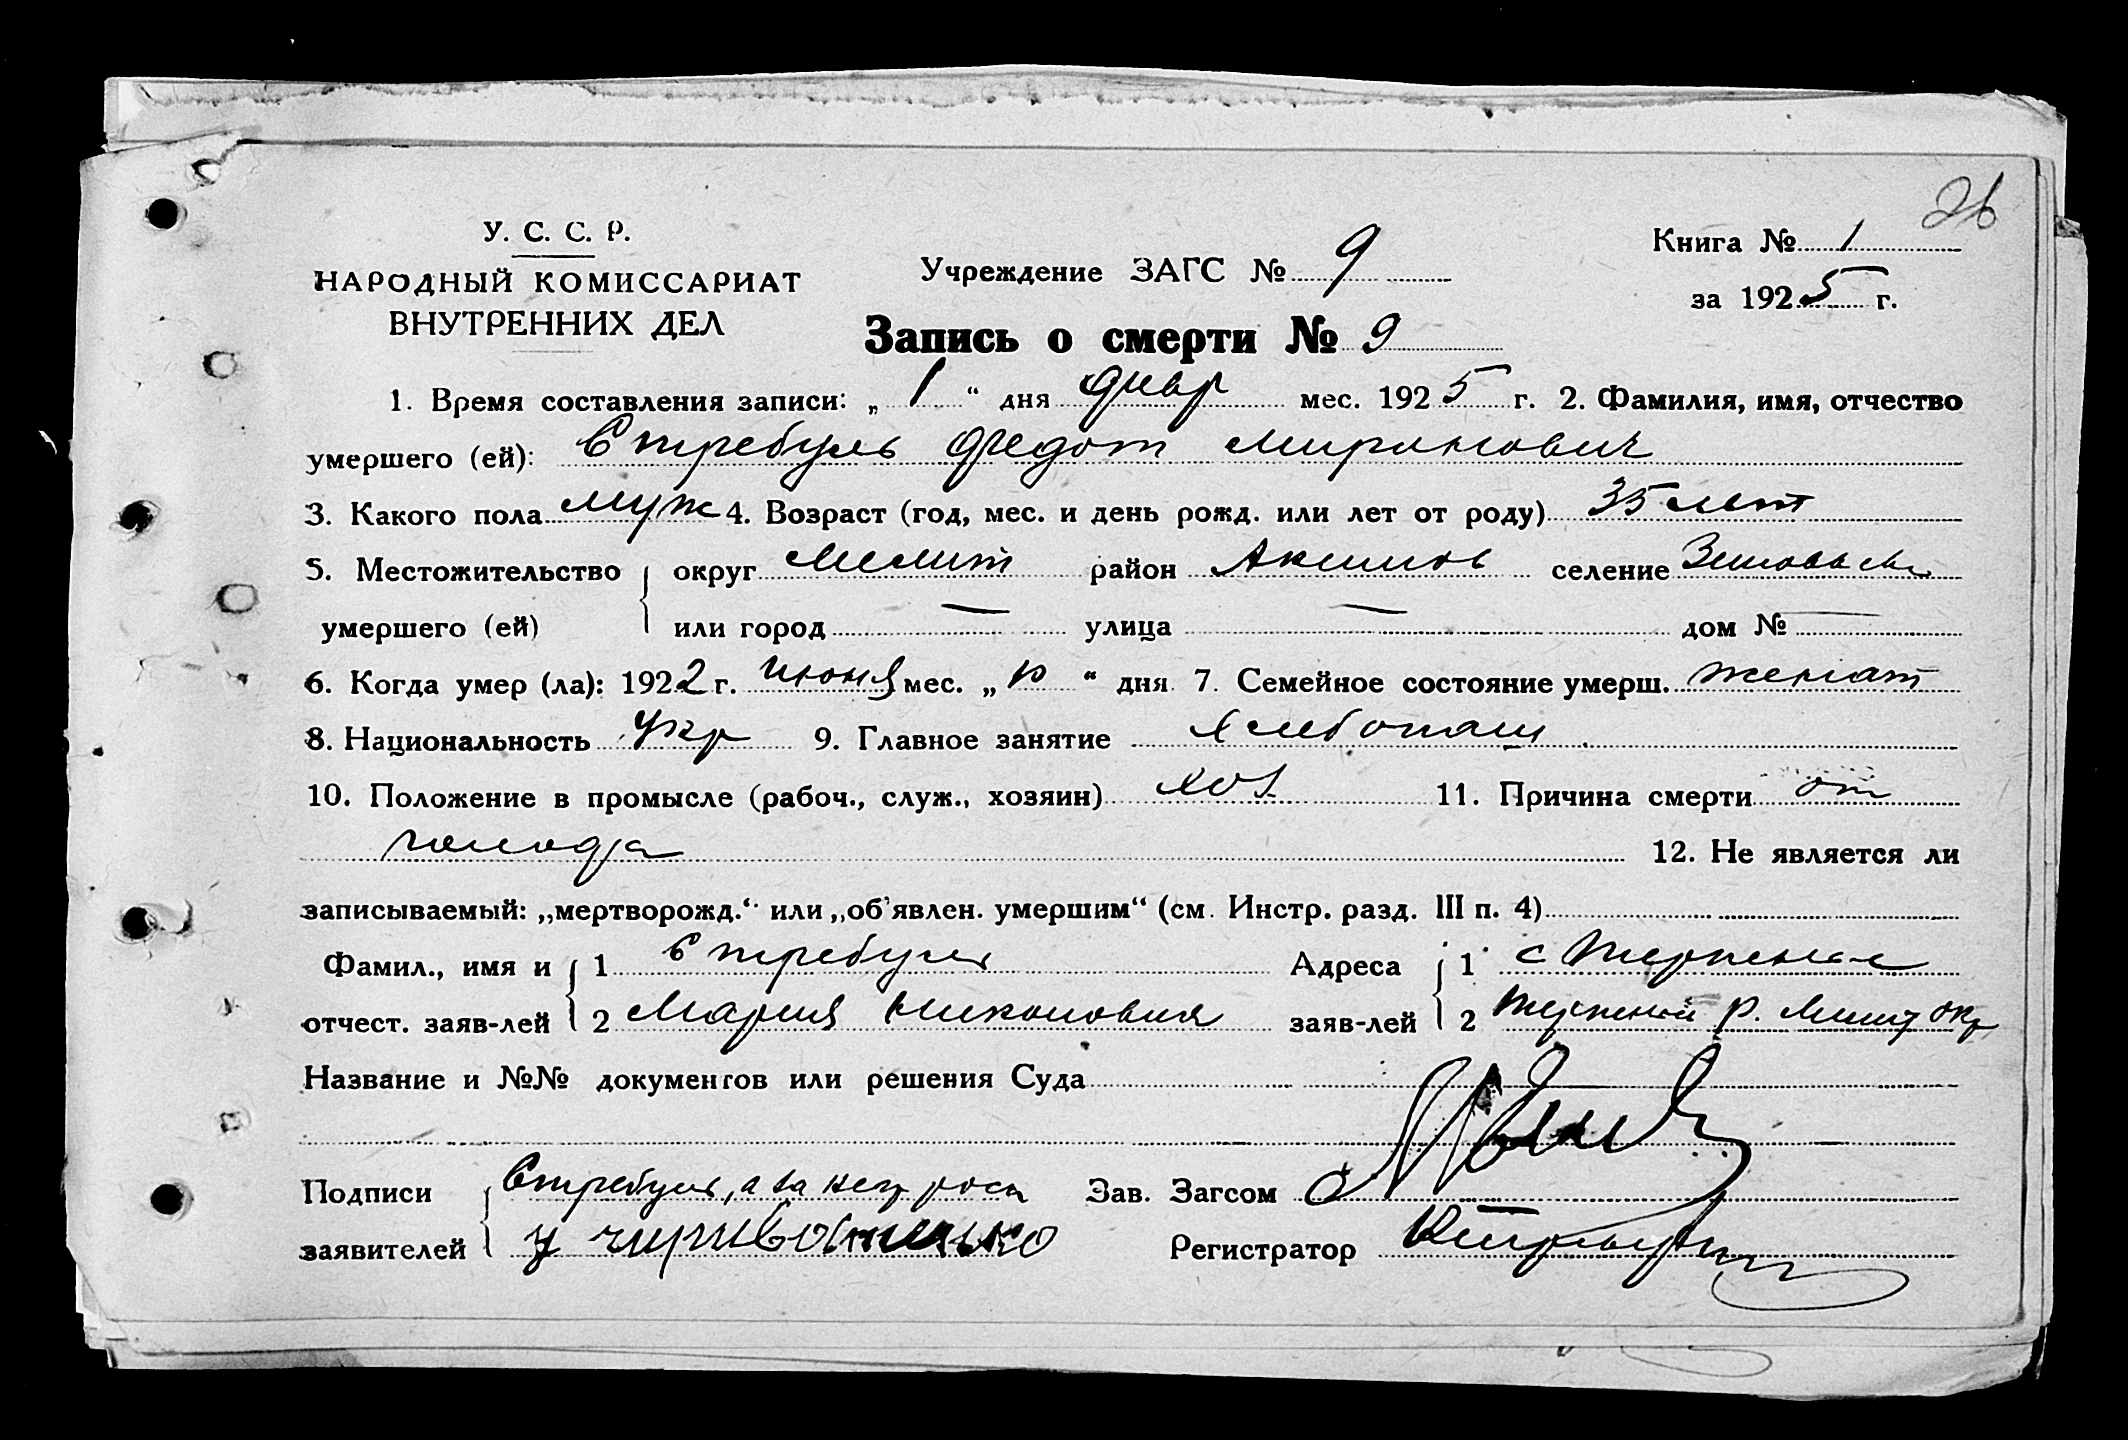 26
У. С. С. Р.
НАРОДНЫЙ КОМИССАРИАТ
ВНУТРЕННИХ ДЕЛ
Учреждение ЗАГС № 9
Книга № 1
за 1925 г.
Запись о смерти № 9
1. Время составления записи: „ 1 “ дня январ мес. 1925 г. 2. Фамилия, имя, отчество
умершего (ей): Стребуль Федот Миронович
3. Какого пола муж 4. Возраст (год, мес. и день рожд. или лет от роду) 35 лет
5. Местожительство округ Мелит район Акимов селение
умершего (ей) или город — улица — дом № —
6. Когда умер (ла): 1922 г. июня мес. „ 10 “ дня 7. Семейное состояние умерш. женат
8. Национальность Укр 9. Главное занятие хлебопаш
10. Положение в промысле (рабоч., служ., хозяин) хоз 11. Причина смерти от
голода 12. Не является ли
записываемый: „мертворожд.“ или „об'явлен. умершим“ (см. Инстр. разд. III п. 4)
Фамил., имя и 1 Стребуль Адреса 1 с Терпение
отчест. заяв-лей 2 Мария Никоновна заяв-лей 2 р. Мелит окр
Название и №№ документов или решения Суда
Подписи Стребуль, а за негр роси Зав. Загсом
заявителей Регистратор